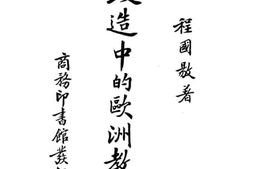 程國敭著
造中的歐洲教
商務印書館發